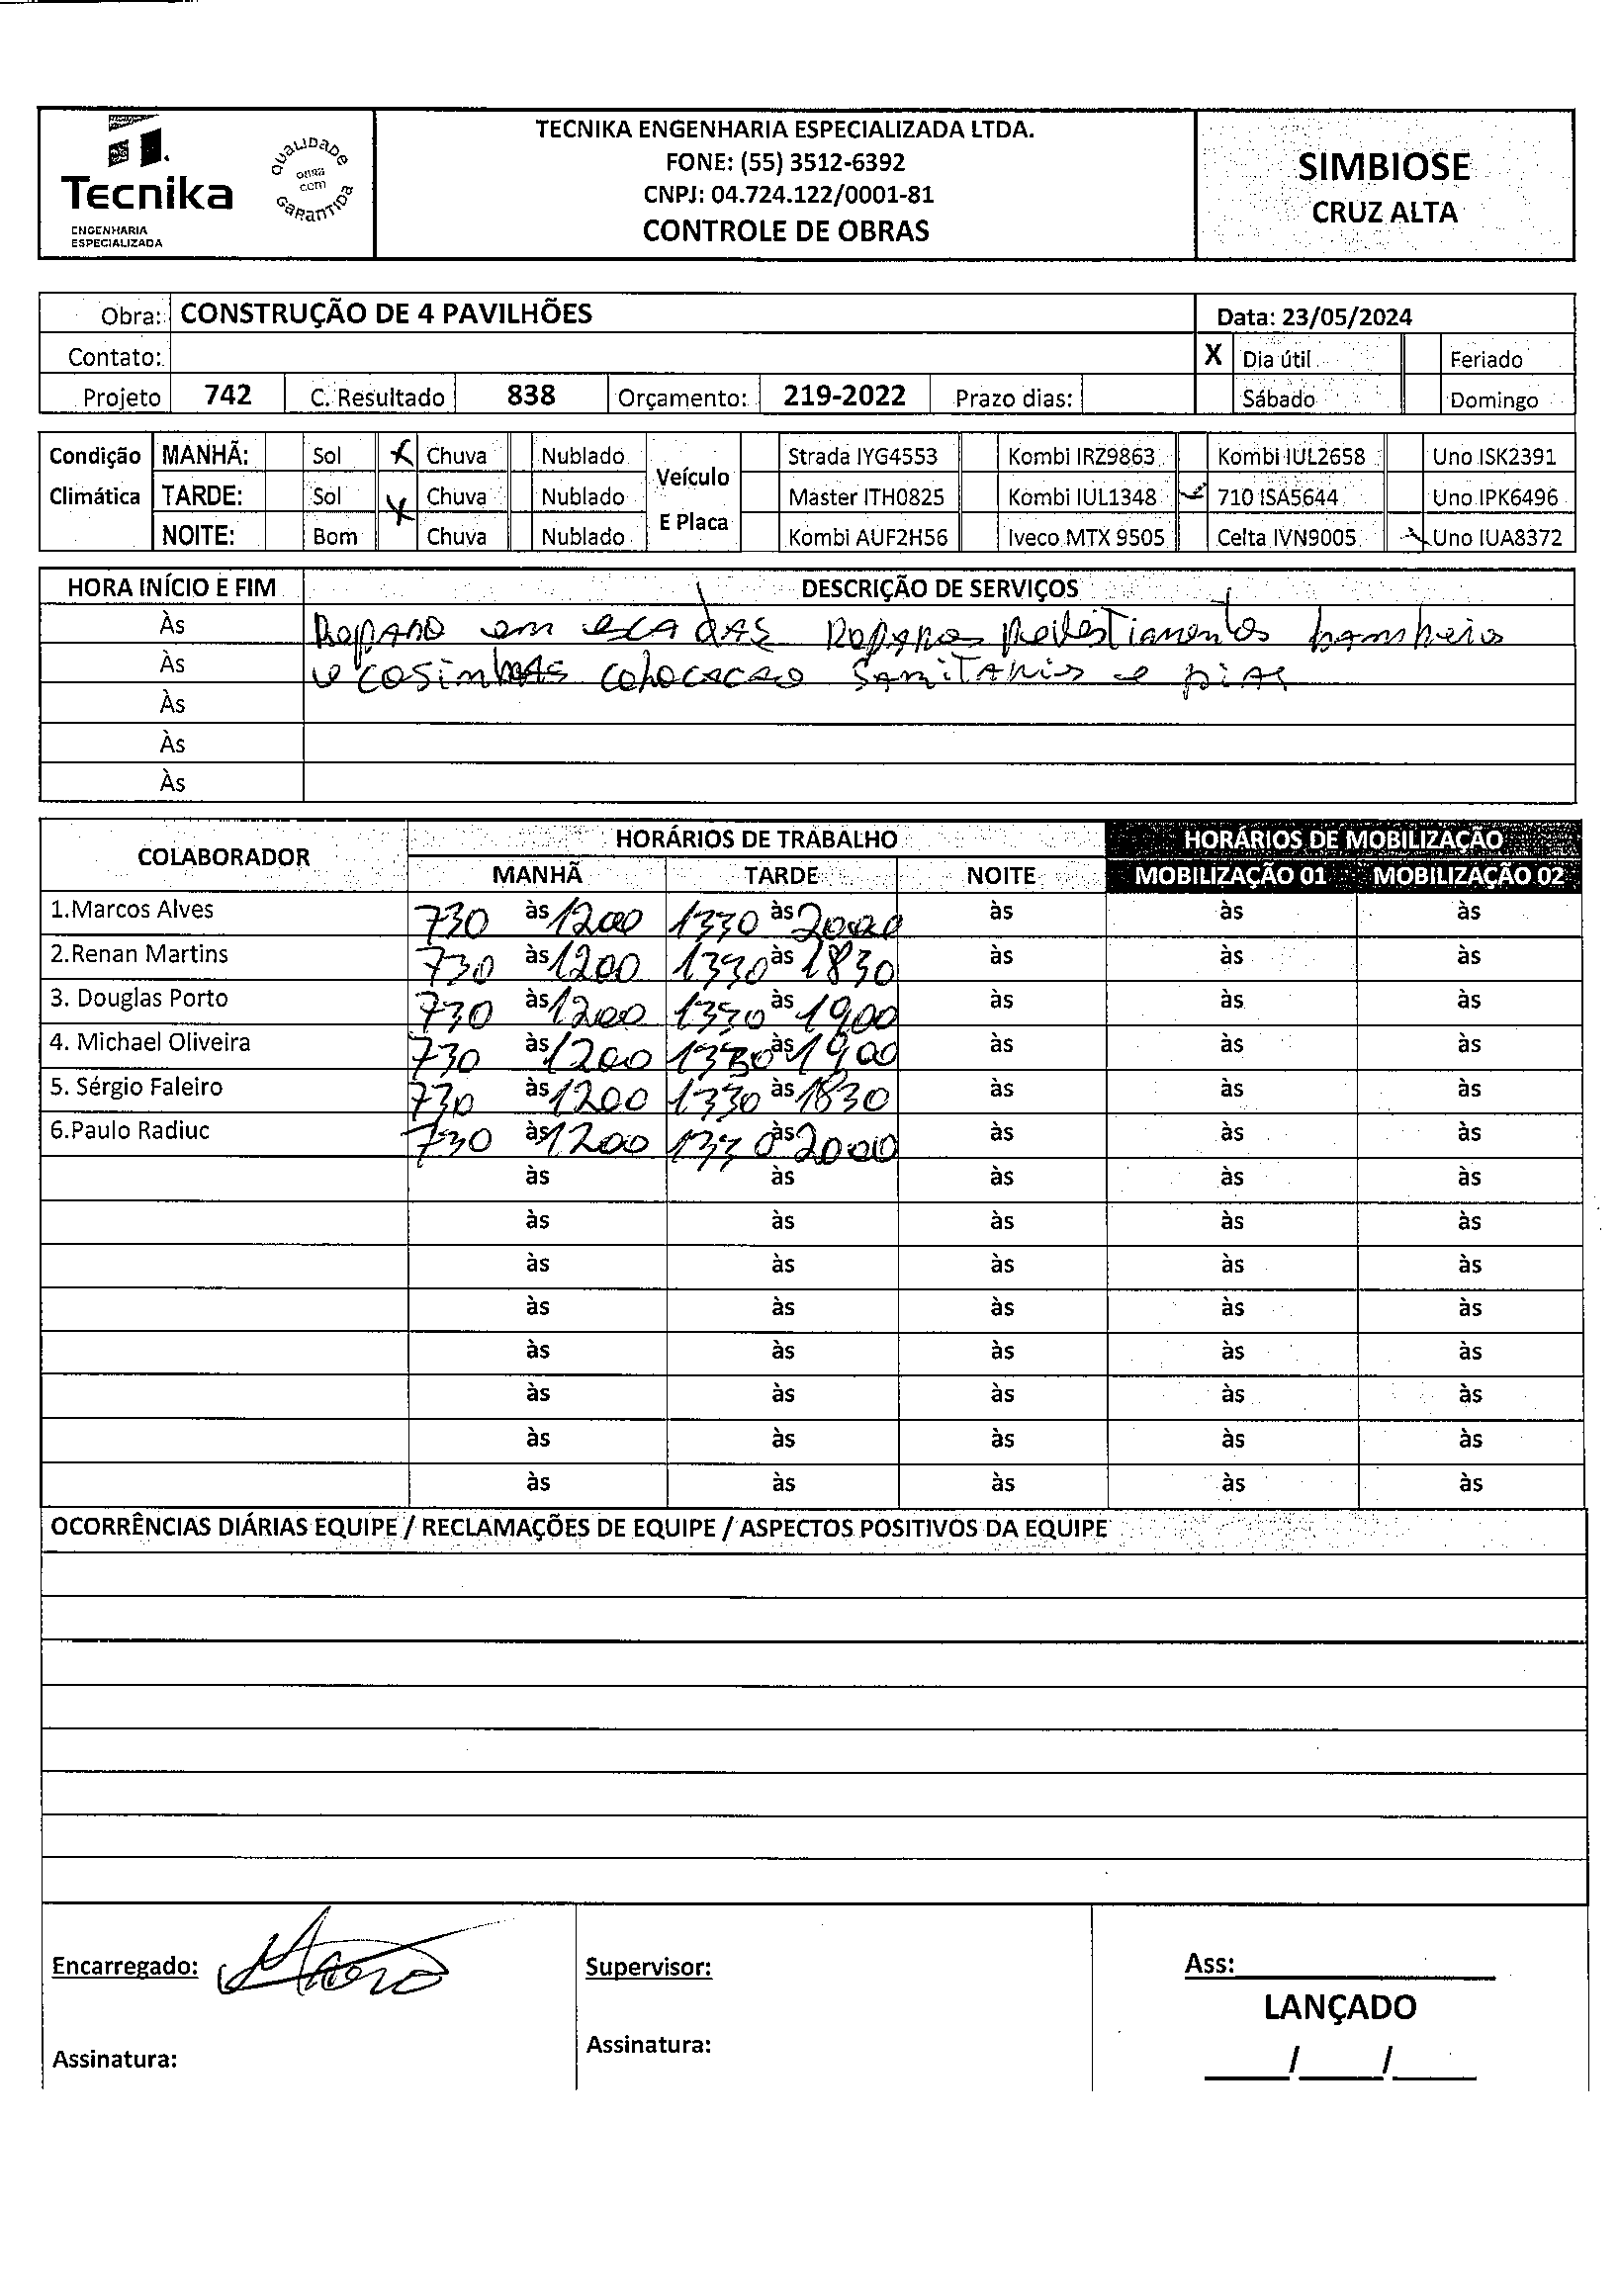 Tecnika
ENGENHARIA
ESPECIALIZADA
QUALIDADE
OBRA
COM
GARANTIDA
TECNIKA ENGENHARIA ESPECIALIZADA LTDA.
FONE: (55) 3512-6392
CNPJ: 04.724.122/0001-81
CONTROLE DE OBRAS
SIMBIOSE
CRUZ ALTA
Obra: CONSTRUÇÃO DE 4 PAVILHÕES Data: 23/05/2024
Contato: X Dia útil Feriado
Projeto 742 C. Resultado 838 Orçamento: 219-2022 Prazo dias: Sábado Domingo
Condição Climática Veículo E Placa
MANHÃ: Sol X Chuva Nublado Strada IYG4553 Kombi IRZ9863 Kombi IUL2658 Uno ISK2391
TARDE: Sol X Chuva Nublado Master ITH0825 Kombi IUL1348 710 ISA5644 Uno IPK6496
NOITE: Bom Chuva Nublado Kombi AUF2H56 Iveco MTX 9505 Celta IVN9005 Uno IUA8372
HORA INÍCIO E FIM DESCRIÇÃO DE SERVIÇOS
Às Reparo em escadas Reparos Revestiamentos banheiro
Às e cosinhas colocacao sanitarios e pias
Às
Às
Às
COLABORADOR HORÁRIOS DE TRABALHO HORÁRIOS DE MOBILIZAÇÃO
MANHÃ TARDE NOITE MOBILIZAÇÃO 01 MOBILIZAÇÃO 02
1.Marcos Alves 730 às 1200 1330 às 2000 às às às
2.Renan Martins 730 às 1200 1330 às 1830 às às às
3. Douglas Porto 730 às 1200 1330 às 1900 às às às
4. Michael Oliveira 730 às 1200 1330 às 1900 às às às
5. Sérgio Faleiro 730 às 1200 1330 às 1830 às às às
6.Paulo Radiuc 730 às 1200 1330 às 2000 às às às
às às às às às
às às às às às
às às às às às
às às às às às
às às às às às
às às às às às
às às às às às
às às às às às
OCORRÊNCIAS DIÁRIAS EQUIPE / RECLAMAÇÕES DE EQUIPE / ASPECTOS POSITIVOS DA EQUIPE
Encarregado: Supervisor: Ass:
LANÇADO
Assinatura: Assinatura: / /